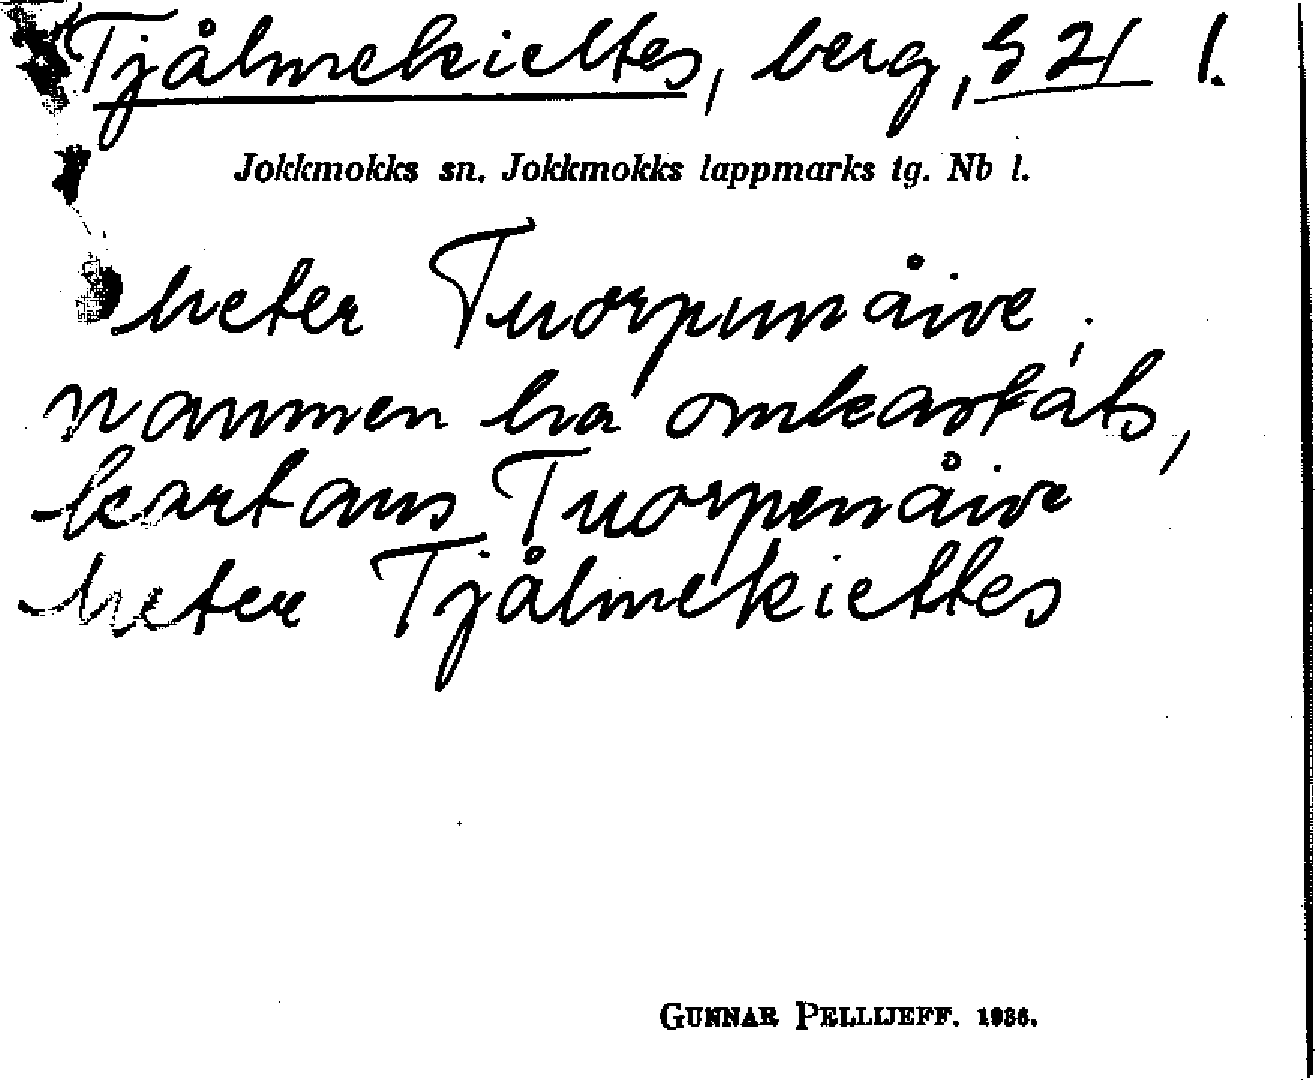 Tjålmekieltes, berg, S 21 1.
Jokkmokks sn. Jokkmokks lappmarks tg. Nb l.
heter Tuorpunåive,
namnen ha omkastats,
kartans Tuorpenåive
heter Tjålmekieltes
GUNNAR PELLIJEFF. 1936.